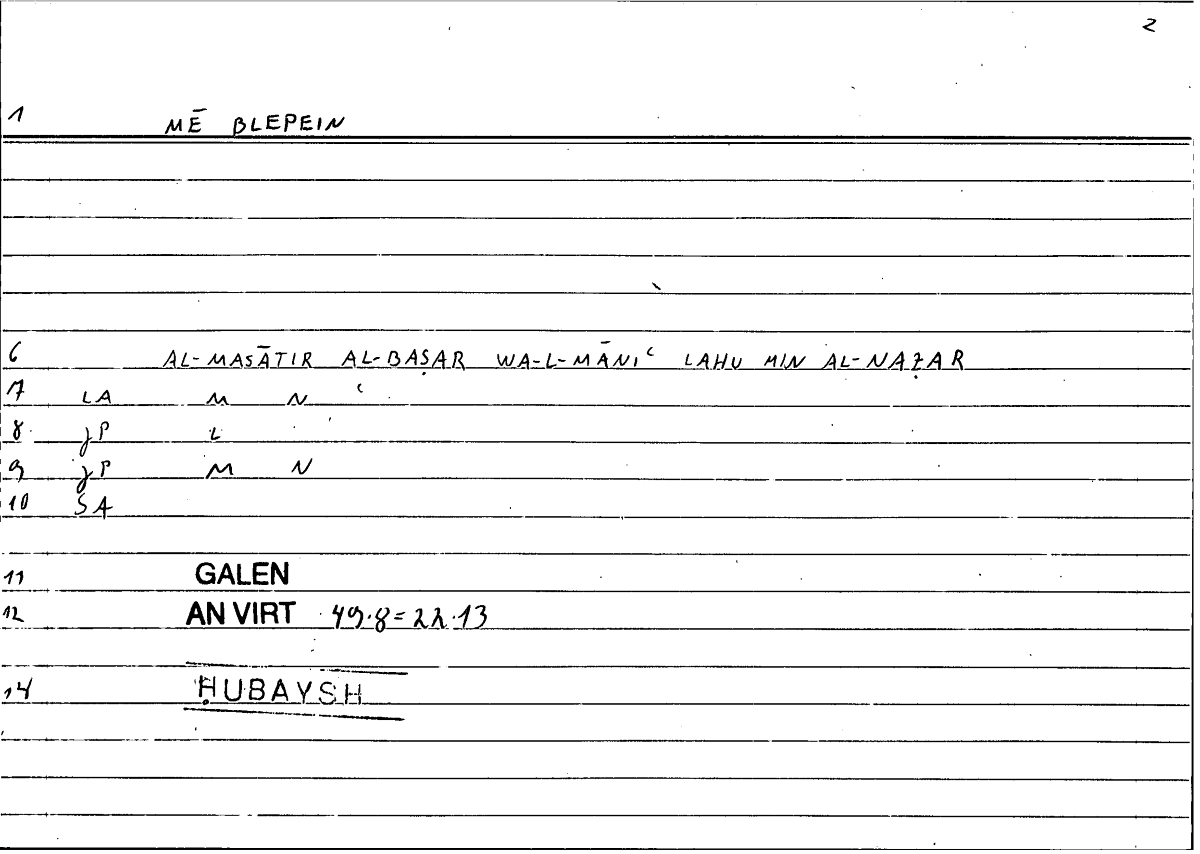 2
1 MĒ BLEPEIN
6 AL-MASĀTIR AL-BAṢAR WA-L-MĀNIʿ LAHU MIN AL-NAẒAR
7 LA M N ʿ
8 jP L
9 jP M N
10 SA
11 GALEN
12 AN VIRT 49.8=22.13
14 ḤUBAYSH